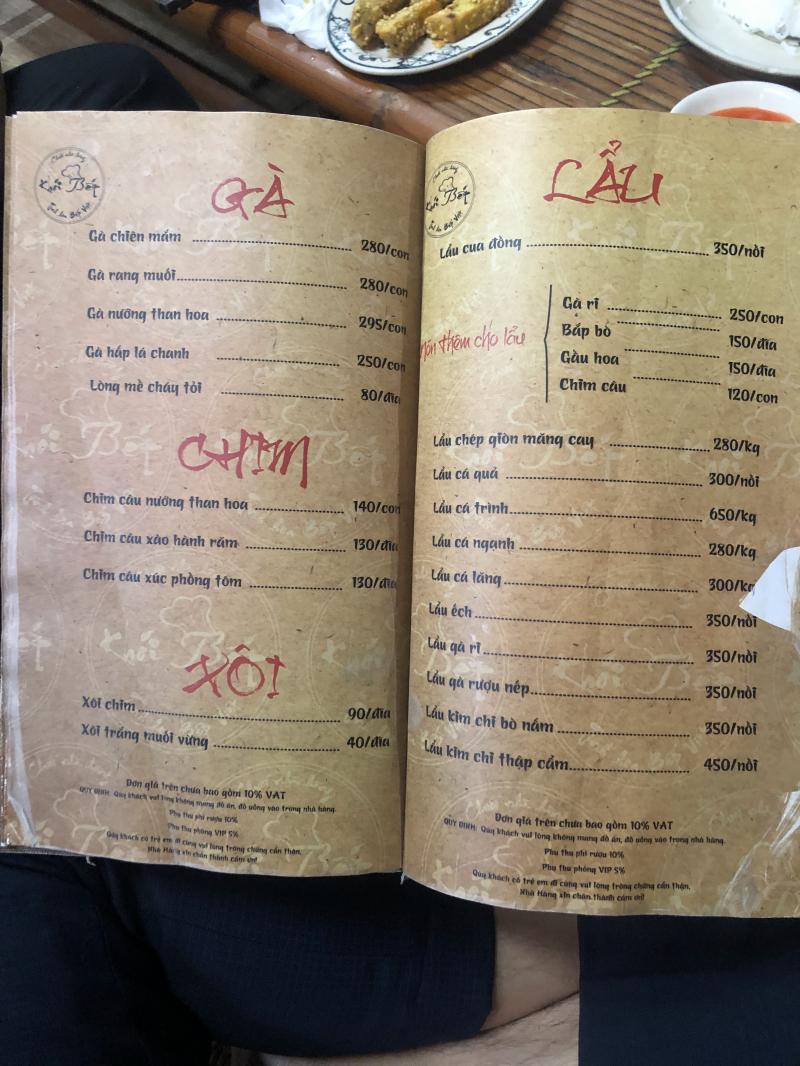 Khói Bếp
GÀ
Gà chiên mắm 280/con
Gà rang muối 280/con
Gà nướng than hoa 295/con
Gà hấp lá chanh 250/con
Lòng mề cháy tỏi 80/đĩa
CHIM
Chim câu nướng than hoa 140/con
Chim câu xào hành răm 130/đĩa
Chim câu xúc phồng tôm 130/đĩa
XÔI
Xôi chim 90/đĩa
Xôi trắng muối vừng 40/đĩa
Đơn giá trên chưa bao gồm 10% VAT
QUY ĐỊNH: Quý khách vui lòng không mang đồ ăn, đồ uống vào trong nhà hàng.
Phụ thu phí rượu 10%
Phụ thu phòng VIP 5%
Quý khách có trẻ em đi cùng vui lòng trông chừng cẩn thận.
Nhà Hàng xin chân thành cám ơn!
Khói Bếp
LẨU
Lẩu cua đồng 350/nồi
Món thêm cho lẩu
Gà ri 250/con
Bắp bò 150/đĩa
Gầu hoa 150/đĩa
Chim câu 120/con
Lẩu chép giòn măng cay 280/kg
Lẩu cá quả 300/nồi
Lẩu cá trình 650/kg
Lẩu cá ngạnh 280/kg
Lẩu cá lăng 300/kg
Lẩu ếch 350/nồi
Lẩu gà ri 350/nồi
Lẩu gà rượu nếp 350/nồi
Lẩu kim chi bò nấm 350/nồi
Lẩu kim chi thập cẩm 450/nồi
Đơn giá trên chưa bao gồm 10% VAT
QUY ĐỊNH: Quý khách vui lòng không mang đồ ăn, đồ uống vào trong nhà hàng.
Phụ thu phí rượu 10%
Phụ thu phòng VIP 5%
Quý khách có trẻ em đi cùng vui lòng trông chừng cẩn thận.
Nhà Hàng xin chân thành cám ơn!